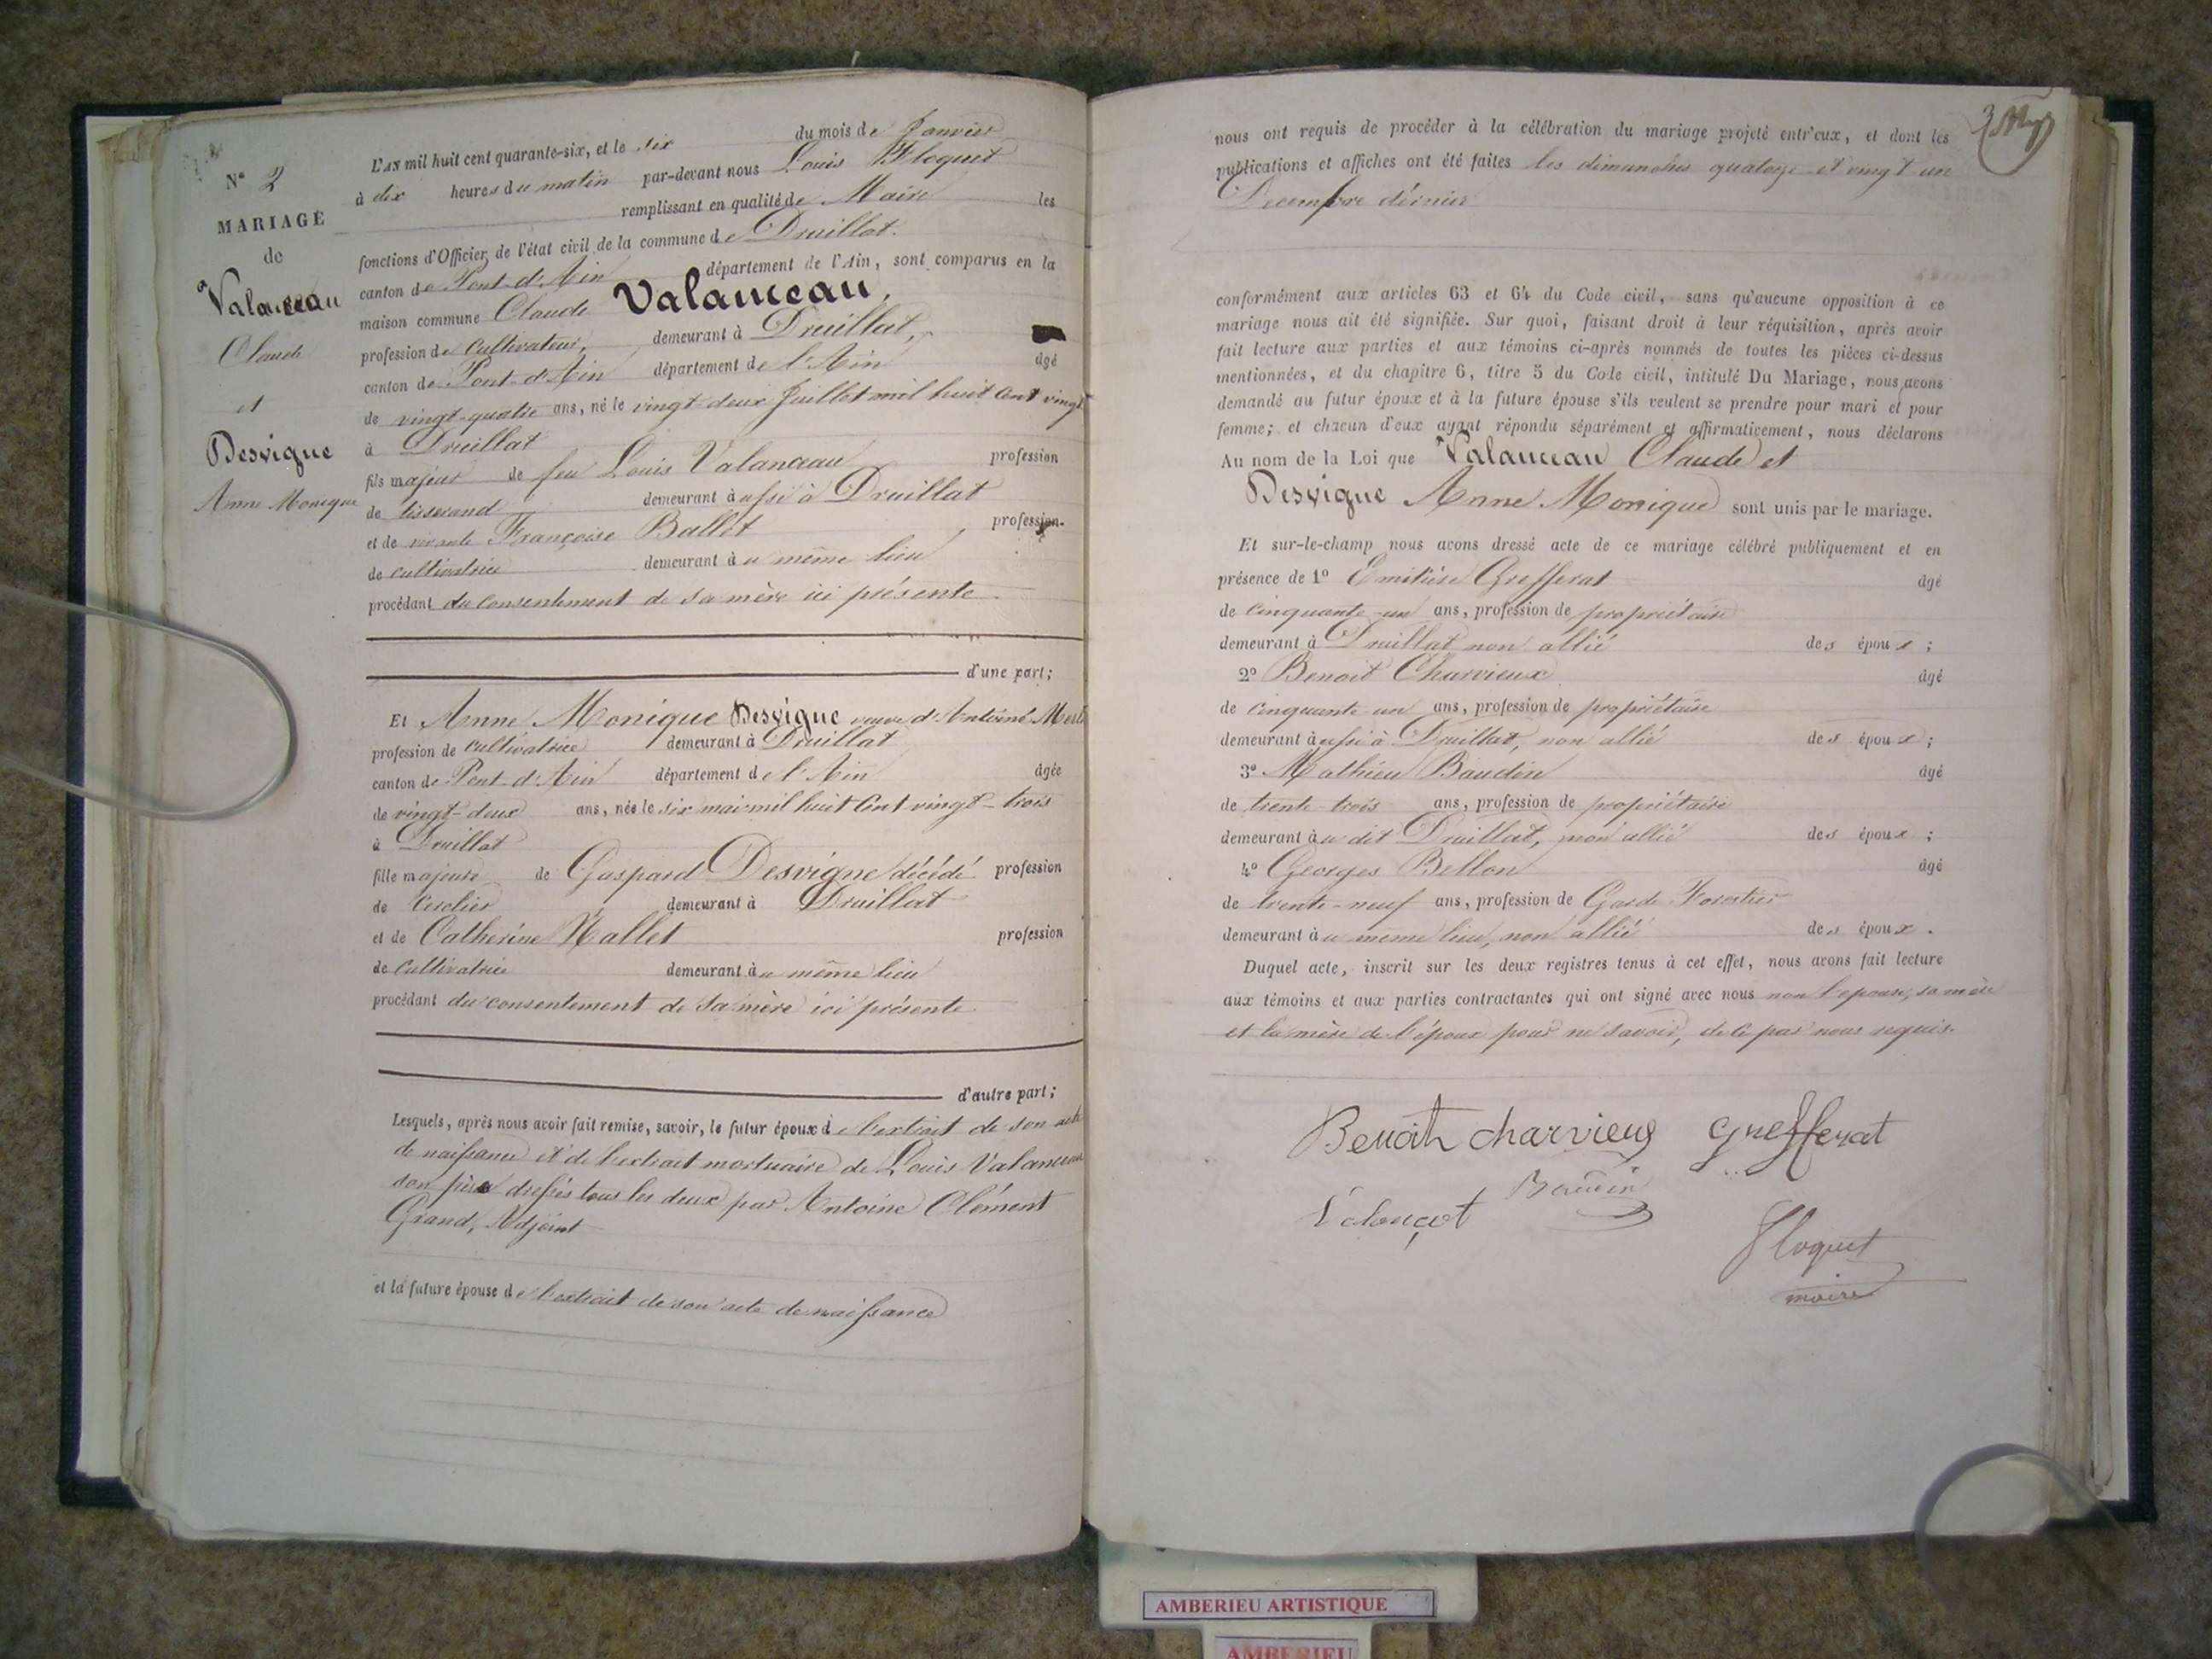 N° 2
MARIAGE
de
Valanceau
Claude
et
Desvigne
Anne Monique
L'AN mil huit cent quarante-six, et le six du mois de Janvier
à dix heures du matin par-devant nous Louis Floquet
remplissant en qualité de Maire les
fonctions d'Officier de l'état civil de la commune de Druillat.
canton de Pont-d'Ain département de l'Ain, sont comparus en la
maison commune Claude Valanceau,
profession de cultivateur, demeurant à Druillat,
canton de Pont-d'Ain département de l'Ain âgé
de vingt-quatre ans, né le vingt-deux Juillet mil huit cent vingt
à Druillat
fils majeur de feu Louis Valanceau profession
de tisserand demeurant aussi à Druillat
et de vivante Françoise Ballet profession
de cultivatrice demeurant au même lieu
procédant du consentement de sa mère ici présente.
d'une part;
Et Anne Monique Desvigne veuve d'Antoine
profession de cultivatrice demeurant à Druillat
canton de Pont-d'Ain département de l'Ain âgée
de vingt-deux ans, née le six mai mil huit cent vingt-trois
à Druillat
fille majeure de Gaspard Desvigne décédé profession
de cerclier demeurant à Druillat
et de Catherine Hallet profession
de cultivatrice demeurant au même lieu
procédant du consentement de sa mère ici présente
d'autre part;
Lesquels, après nous avoir fait remise, savoir, le futur époux de l'extrait de son acte
de naissance et de l'extrait mortuaire de Louis Valanceau
son père dressés tous les deux par Antoine Clément
Grand, Adjoint
et la future épouse de l'extrait de son acte de naissance
nous ont requis de procéder à la célébration du mariage projeté entr'eux, et dont les
publications et affiches ont été faites les dimanches quatorze et vingt un
Decembre dernier
conformément aux articles 63 et 64 du Code civil, sans qu'aucune opposition à ce
mariage nous ait été signifiée. Sur quoi, faisant droit à leur réquisition, après avoir
fait lecture aux parties et aux témoins ci-après nommés de toutes les pièces ci-dessus
mentionnées, et du chapitre 6, titre 5 du Code civil, intitulé Du Mariage, nous avons
demandé au futur époux et à la future épouse s'ils veulent se prendre pour mari et pour
femme; et chacun d'eux ayant répondu séparément et affirmativement, nous déclarons
Au nom de la Loi que Valanceau Claude et
Desvigne Anne Monique sont unis par le mariage.
Et sur-le-champ nous avons dressé acte de ce mariage célébré publiquement et en
présence de 1° Greffera‌t âgé
de cinquante-un ans, profession de propriétaire
demeurant à Druillat non allié des époux;
2° Benoit Charvieux âgé
de cinquante un ans, profession de propriétaire
demeurant aussi à Druillat, non allié des époux;
3° Mathieu Baudin âgé
de trente-trois ans, profession de propriétaire
demeurant au dit Druillat, non allié des époux;
4° Georges Bellon âgé
de trente-neuf ans, profession de Garde Forestier
demeurant au même lieu, non allié des époux.
Duquel acte, inscrit sur les deux registres tenus à cet effet, nous avons fait lecture
aux témoins et aux parties contractantes qui ont signé avec nous non l'épouse, sa mère
et la mère de l'époux pour ne savoir, de ce par nous requis.
Benoit charvieux Grefferat
Baudin
Valançot
Floquet
maire
AMBERIEU ARTISTIQUE
AMBERIEU